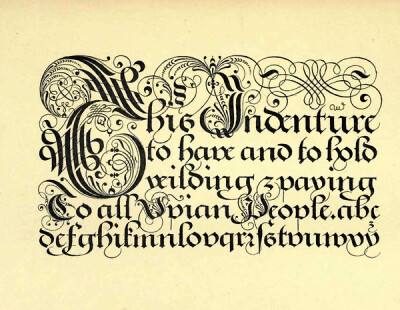 This Indenture
to have and to hold
yeilding & paying
To all Xpian People. abc
defghiklmnopqrſstvuwxyz